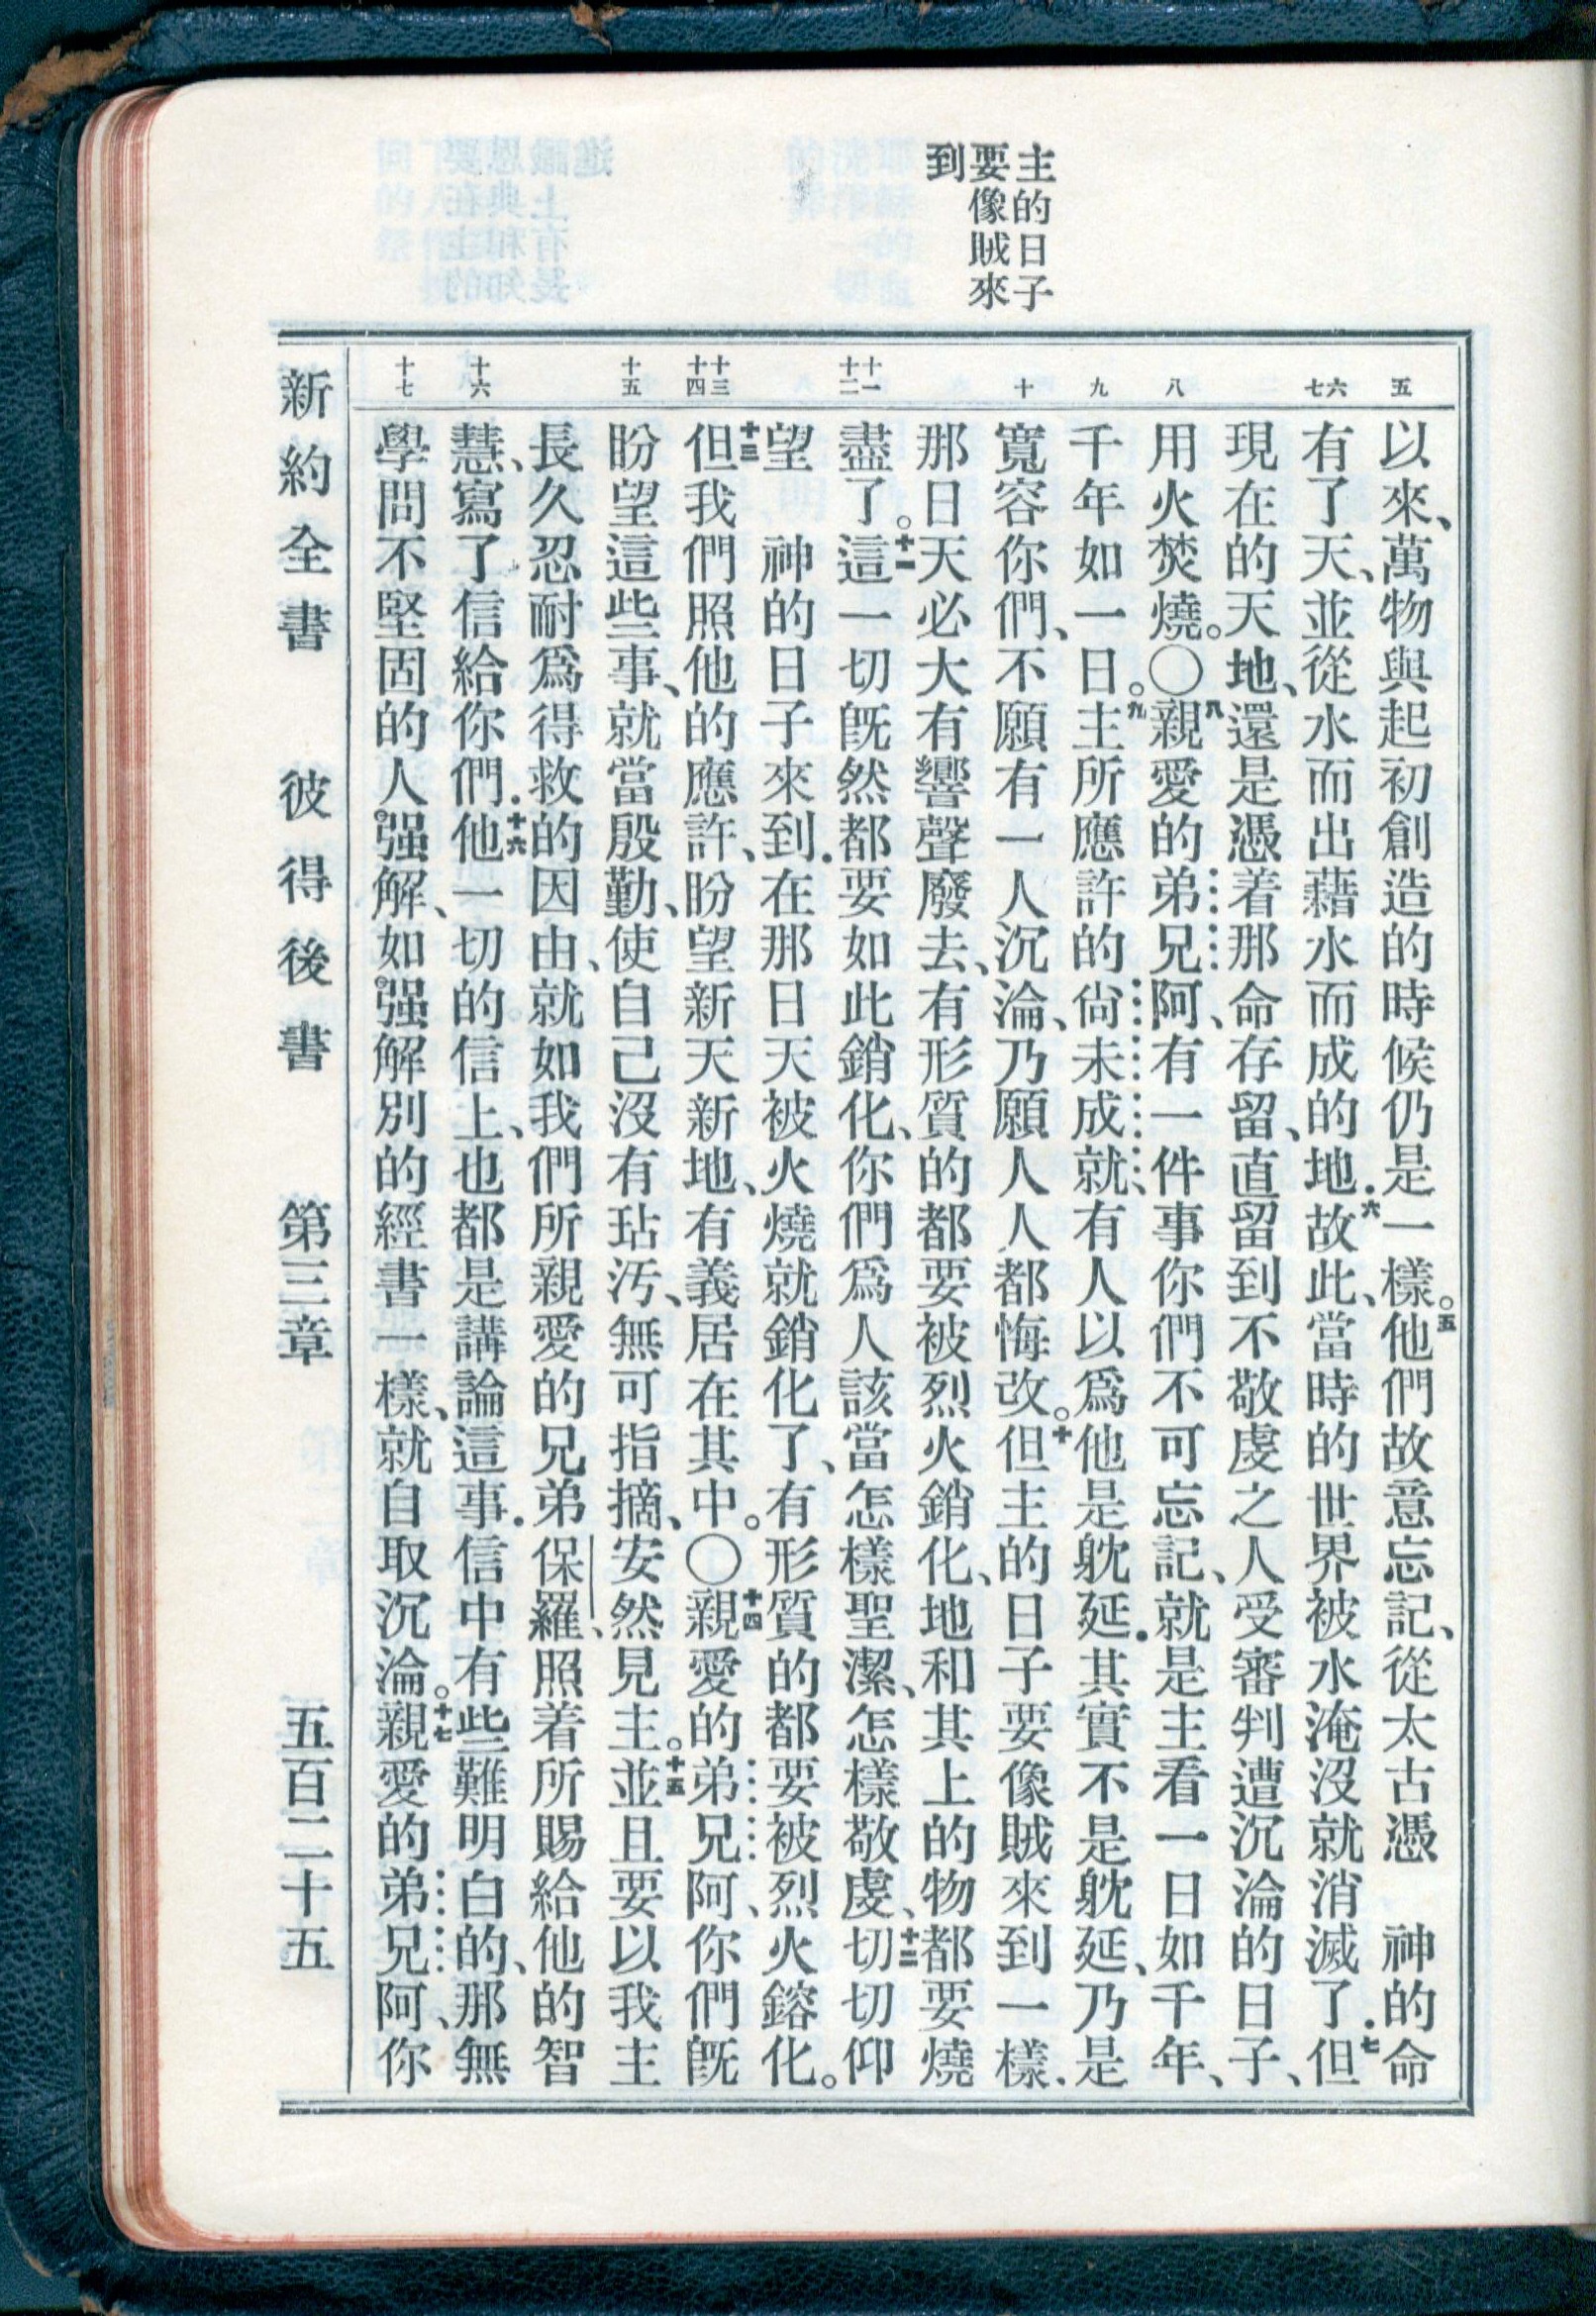 主的日子
要像賊來
到
五
六
七
八
九
十
十一
十二
十三
十四
十五
十六
十七
以來、萬物與起初創造的時候仍是一樣。五他們故意忘記、從太古憑　神的命
有了天、並從水而出藉水而成的地．六故此、當時的世界被水淹沒就消滅了．七但
現在的天地、還是憑着那命存留、直留到不敬虔之人受審判遭沉淪的日子、
用火焚燒。〇八親愛的弟兄阿、有一件事你們不可忘記、就是主看一日如千年、
千年如一日。九主所應許的尙未成就、有人以爲他是躭延．其實不是躭延、乃是
寬容你們、不願有一人沉淪、乃願人人都悔改。十但主的日子要像賊來到一樣．
那日天必大有響聲廢去、有形質的都要被烈火銷化、地和其上的物都要燒
盡了。十一這一切旣然都要如此銷化、你們爲人該當怎樣聖潔、怎樣敬虔、十二切切仰
望　神的日子來到．在那日天被火燒就銷化了、有形質的都要被烈火鎔化。
十三但我們照他的應許、盼望新天新地、有義居在其中。〇十四親愛的弟兄阿、你們旣
盼望這些事、就當殷勤、使自己沒有玷汚、無可指摘、安然見主。十五並且要以我主
長久忍耐爲得救的因由、就如我們所親愛的兄弟保羅、照着所賜給他的智
慧、寫了信給你們．十六他一切的信上、也都是講論這事．信中有些難明白的、那無
學問不堅固的人强解、如强解別的經書一樣、就自取沉淪。十七親愛的弟兄阿、你
新約全書　彼得後書　第三章　五百二十五